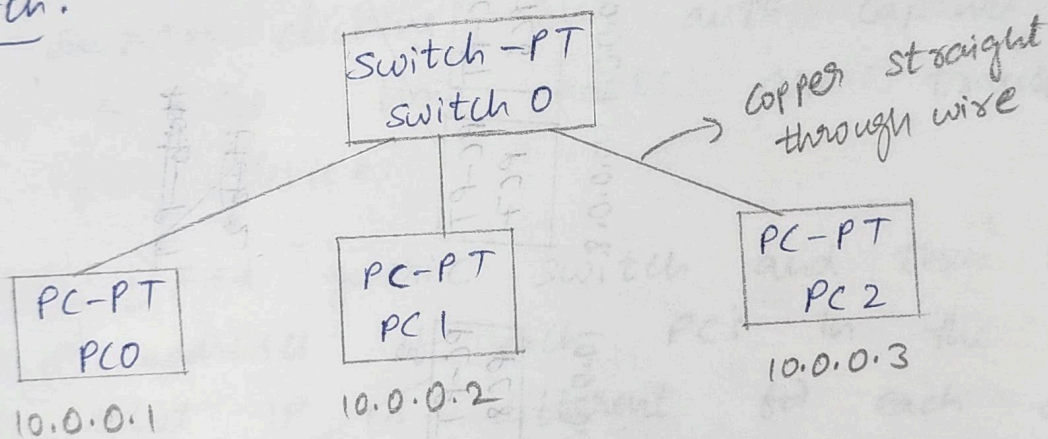 Switch-PT
Switch 0
Copper straight
through wire
PC-PT
PC0
10.0.0.1
PC-PT
PC 1
10.0.0.2
PC-PT
PC 2
10.0.0.3